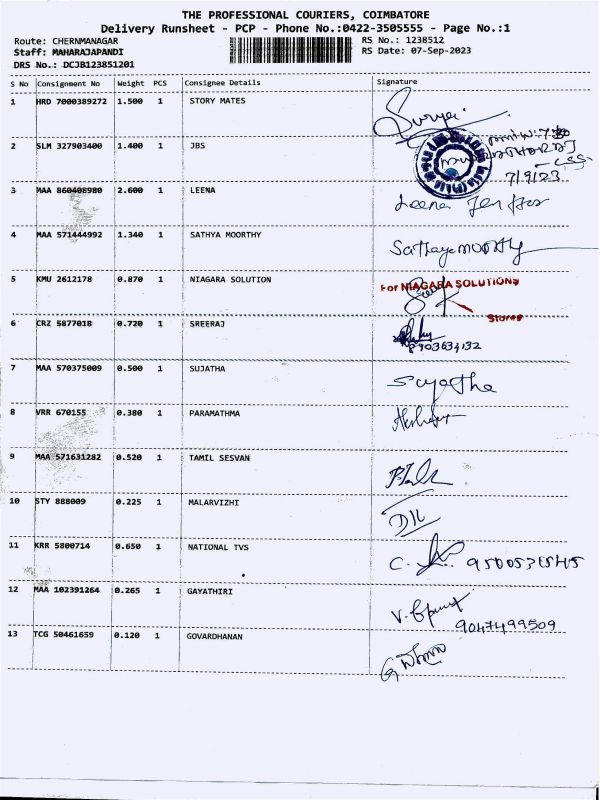 THE PROFESSIONAL COURIERS, COIMBATORE
Delivery Runsheet - PCP - Phone No.:0422-3505555 - Page No.:1
Route: CHERNMANAGAR RS No.: 1238512
Staff: MAHARAJAPANDI RS Date: 07-Sep-2023
DRS No.: DCJB123851201
S No Consignment No Weight PCS Consignee Details Signature
1 HRD 7000389272 1.500 1 STORY MATES Surya
2 SLM 327903400 1.400 1 JBS
7/9/23
3 MAA 860408980 2.600 1 LEENA Leena
4 MAA 571444992 1.340 1 SATHYA MOORTHY Sathayamoorthy
5 KMU 2612178 0.870 1 NIAGARA SOLUTION For NIAGARA SOLUTIONS
Stores
6 CRZ 5877018 0.720 1 SREERAJ
8903634132
7 MAA 570375009 0.500 1 SUJATHA Sujatha
8 VRR 670155 0.380 1 PARAMATHMA
9 MAA 571631282 0.520 1 TAMIL SESVAN
10 STY 888009 0.225 1 MALARVIZHI
11 KRR 5800714 0.650 1 NATIONAL TVS C.
12 MAA 102391264 0.265 1 GAYATHIRI V.
9047499509
13 TCG 50461659 0.120 1 GOVARDHANAN